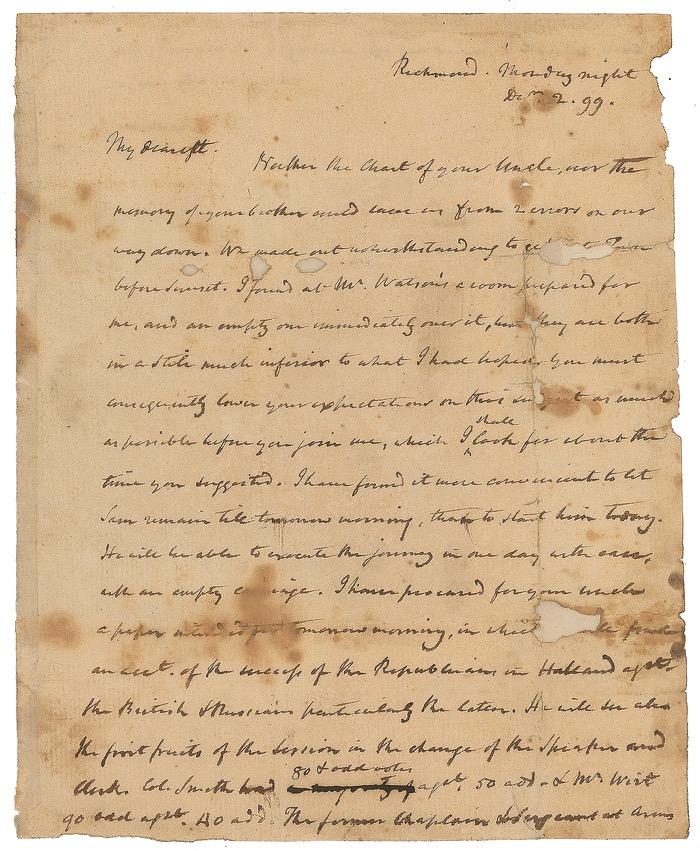 Richmond. Monday night
Decr. 2. 99.
My dearest.
Neither the Chart of your Uncle, nor the
memory of your brother could save us from 2 errors on our
way down. We made out notwithstanding to get
before Sunset. I found at Mr. Watson's a room prepared for
me, and an empty one immediately over it, but they are both
in a stile much inferior to what I had hoped. You must
consequently lower your expectations on this subject as much
shall
as possible before you join me, which I look for about the
time you suggested. I have found it more convenient to let
Sam remain till tomorrow morning, than to start him today.
He will be able to execute the journey in one day with ease,
with an empty carriage. I have procured for your uncle
a paper tomorrow morning, in which
an acct. of the success of the Republicans in Holland agst.
the British & Russians particularly the latter. He will see also
the first fruits of the session in the change of the Speaker and
80 & odd votes
Clerk. Col. Smith had agst. 50 odd. & Mr. Wirt
90 odd agst. 40 odd. The former Chaplain & Sergeant at Arms